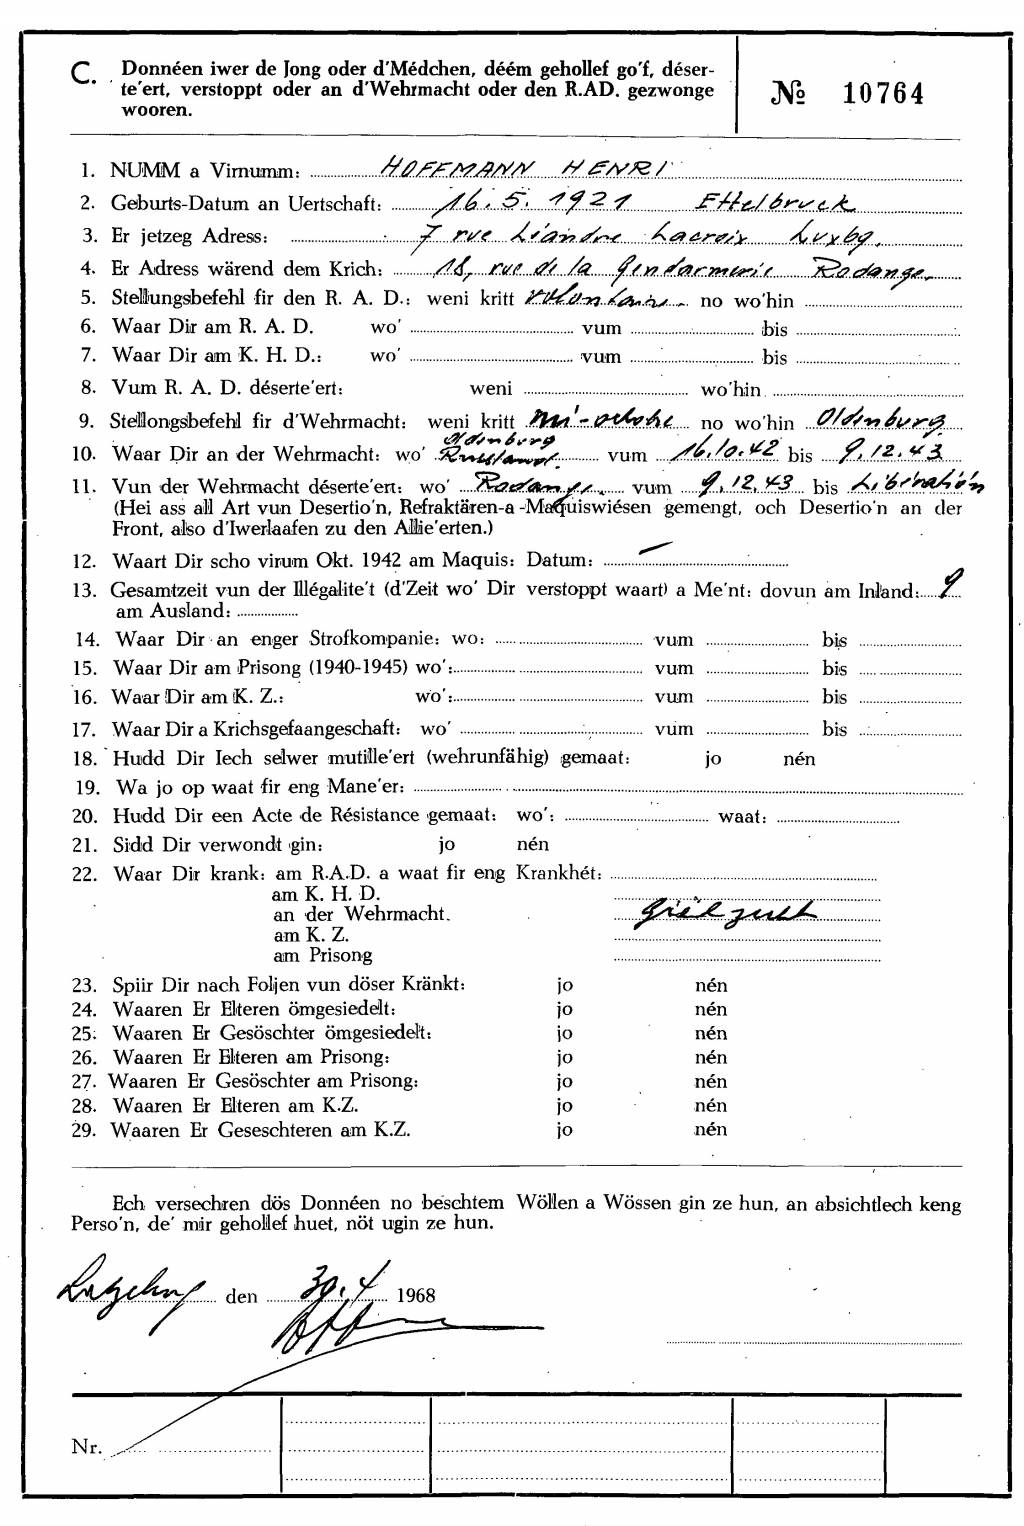 C. Donnéen iwer de Jong oder d'Médchen, déém gehollef go'f, déser-
te'ert, verstoppt oder an d'Wehrmacht oder den R.AD. gezwonge
wooren.
№ 10764
1. NUMM a Virnumm: HOFFMANN HENRI
2. Geburts-Datum an Uertschaft: 16.5.1921 Ettelbruck
3. Er jetzeg Adress: 7 rue Liandre Lacroix Luxbg.
4. Er Adress wärend dem Krich: 18, rue de la Gendarmerie Rodange
5. Stellungsbefehl fir den R. A. D.: weni kritt volontaire no wo'hin
6. Waar Dir am R. A. D. wo' vum bis
7. Waar Dir am K. H. D.: wo' vum bis
8. Vum R. A. D. déserte'ert: weni wo'hin
9. Stellongsbefehl fir d'Wehrmacht: weni kritt mi-octobre no wo'hin Oldenburg
10. Waar Dir an der Wehrmacht: wo' Oldenburg Russland vum 16.10.42 bis 9.12.43
11. Vun der Wehrmacht déserte'ert: wo' Rodange vum 9.12.43 bis Libération
(Hei ass all Art vun Desertio'n, Refraktären-a-Maquiswiésen gemengt, och Desertio'n an der
Front, also d'Iwerlaafen zu den Allie'erten.)
12. Waart Dir scho virum Okt. 1942 am Maquis: Datum: —
13. Gesamtzeit vun der Illégalite't (d'Zeit wo' Dir verstoppt waart) a Me'nt: dovun am Inland: 9
am Ausland:
14. Waar Dir an enger Strofkompanie: wo: vum bis
15. Waar Dir am Prisong (1940-1945) wo': vum bis
16. Waar Dir am K. Z.: wo': vum bis
17. Waar Dir a Krichsgefaangeschaft: wo' vum bis
18. Hudd Dir Iech selwer mutille'ert (wehrunfähig) gemaat: jo nén
19. Wa jo op waat fir eng Mane'er:
20. Hudd Dir een Acte de Résistance gemaat: wo': waat:
21. Sidd Dir verwondt gin: jo nén
22. Waar Dir krank: am R.A.D. a waat fir eng Krankhét:
am K. H. D.
an der Wehrmacht. Giel zucht
am K. Z.
am Prisong
23. Spiir Dir nach Foljen vun döser Kränkt: jo nén
24. Waaren Er Elteren ömgesiedelt: jo nén
25. Waaren Er Gesöschter ömgesiedelt: jo nén
26. Waaren Er Elteren am Prisong: jo nén
27. Waaren Er Gesöschter am Prisong: jo nén
28. Waaren Er Elteren am K.Z. jo nén
29. Waaren Er Geseschteren am K.Z. jo nén
Ech versechren dös Donnéen no beschtem Wöllen a Wössen gin ze hun, an absichtlech keng
Perso'n, de' mir gehollef huet, nöt ugin ze hun.
den 30.4 1968
Nr.